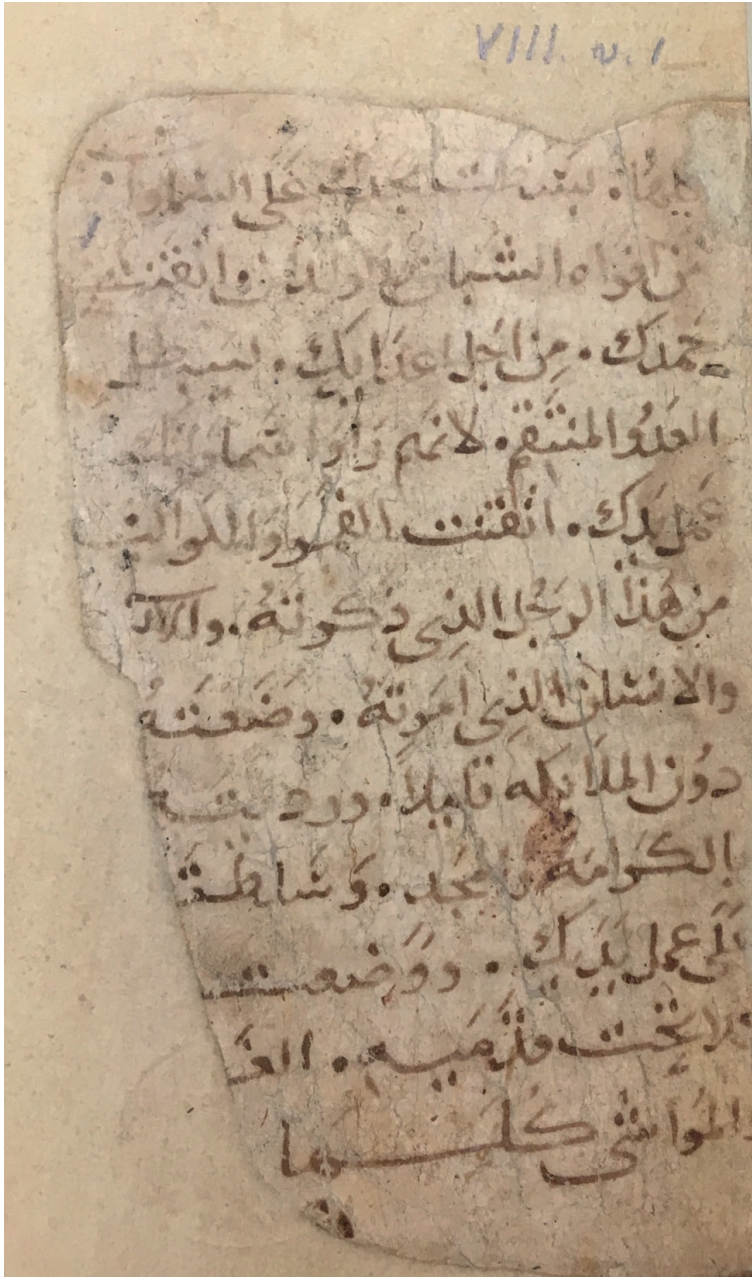 VIII. v. 1
بسطت مجدك على السماوات
من افواه الشبان واتقنت
حمدك . من اجل اعدايك . ليبطل
العدو المنتقم . لانهم راوا سماواتك
عمل يديك . اتقنت القمر والكواكب
من هذا الرجل الذي ذكرته . والا
والانسان الذي امرته . وضعته
دون الملايكه قليلا . ورديته
بالكرامه والمجد . وسلطته
على عمل يديك . ووضعت
كلا تحت قدميه . الغـ
والمواشي كلـــها